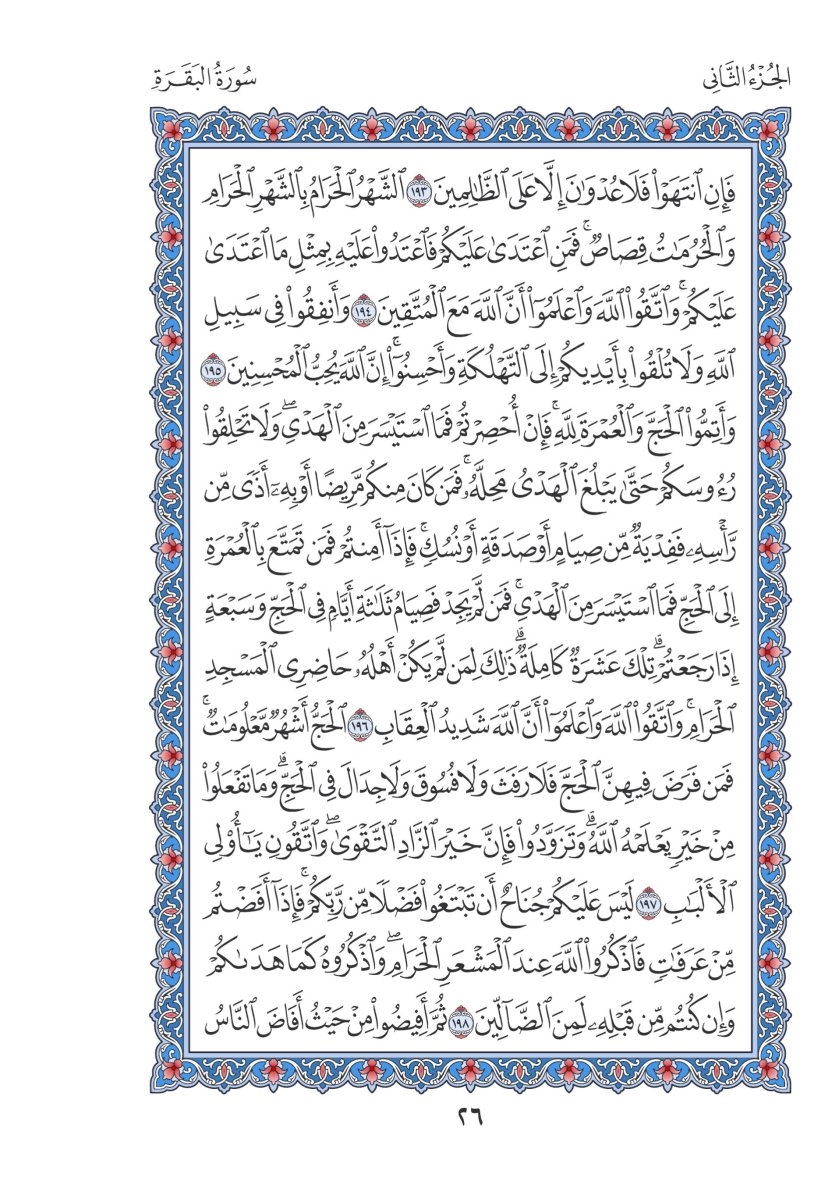 الجُزْءُ الثَّانِى
سُورَةُ البَقَرَةِ
فَإِنِ ٱنتَهَوْا۟ فَلَا عُدْوَٰنَ إِلَّا عَلَى ٱلظَّـٰلِمِينَ ١٩٣ ٱلشَّهْرُ ٱلْحَرَامُ بِٱلشَّهْرِ ٱلْحَرَامِ
وَٱلْحُرُمَـٰتُ قِصَاصٌ ۚ فَمَنِ ٱعْتَدَىٰ عَلَيْكُمْ فَٱعْتَدُوا۟ عَلَيْهِ بِمِثْلِ مَا ٱعْتَدَىٰ
عَلَيْكُمْ ۚ وَٱتَّقُوا۟ ٱللَّهَ وَٱعْلَمُوٓا۟ أَنَّ ٱللَّهَ مَعَ ٱلْمُتَّقِينَ ١٩٤ وَأَنفِقُوا۟ فِى سَبِيلِ
ٱللَّهِ وَلَا تُلْقُوا۟ بِأَيْدِيكُمْ إِلَى ٱلتَّهْلُكَةِ وَأَحْسِنُوٓا۟ ۚ إِنَّ ٱللَّهَ يُحِبُّ ٱلْمُحْسِنِينَ ١٩٥
وَأَتِمُّوا۟ ٱلْحَجَّ وَٱلْعُمْرَةَ لِلَّهِ ۚ فَإِنْ أُحْصِرْتُمْ فَمَا ٱسْتَيْسَرَ مِنَ ٱلْهَدْىِ ۖ وَلَا تَحْلِقُوا۟
رُءُوسَكُمْ حَتَّىٰ يَبْلُغَ ٱلْهَدْىُ مَحِلَّهُۥ ۚ فَمَن كَانَ مِنكُم مَّرِيضًا أَوْ بِهِۦٓ أَذًى مِّن
رَّأْسِهِۦ فَفِدْيَةٌ مِّن صِيَامٍ أَوْ صَدَقَةٍ أَوْ نُسُكٍ ۚ فَإِذَآ أَمِنتُمْ فَمَن تَمَتَّعَ بِٱلْعُمْرَةِ
إِلَى ٱلْحَجِّ فَمَا ٱسْتَيْسَرَ مِنَ ٱلْهَدْىِ ۚ فَمَن لَّمْ يَجِدْ فَصِيَامُ ثَلَـٰثَةِ أَيَّامٍ فِى ٱلْحَجِّ وَسَبْعَةٍ
إِذَا رَجَعْتُمْ ۗ تِلْكَ عَشَرَةٌ كَامِلَةٌ ۗ ذَٰلِكَ لِمَن لَّمْ يَكُنْ أَهْلُهُۥ حَاضِرِى ٱلْمَسْجِدِ
ٱلْحَرَامِ ۚ وَٱتَّقُوا۟ ٱللَّهَ وَٱعْلَمُوٓا۟ أَنَّ ٱللَّهَ شَدِيدُ ٱلْعِقَابِ ١٩٦ ٱلْحَجُّ أَشْهُرٌ مَّعْلُومَـٰتٌ ۚ
فَمَن فَرَضَ فِيهِنَّ ٱلْحَجَّ فَلَا رَفَثَ وَلَا فُسُوقَ وَلَا جِدَالَ فِى ٱلْحَجِّ ۗ وَمَا تَفْعَلُوا۟
مِنْ خَيْرٍ يَعْلَمْهُ ٱللَّهُ ۗ وَتَزَوَّدُوا۟ فَإِنَّ خَيْرَ ٱلزَّادِ ٱلتَّقْوَىٰ ۖ وَٱتَّقُونِ يَـٰٓأُو۟لِى
ٱلْأَلْبَـٰبِ ١٩٧ لَيْسَ عَلَيْكُمْ جُنَاحٌ أَن تَبْتَغُوا۟ فَضْلًا مِّن رَّبِّكُمْ ۚ فَإِذَآ أَفَضْتُم
مِّنْ عَرَفَـٰتٍ فَٱذْكُرُوا۟ ٱللَّهَ عِندَ ٱلْمَشْعَرِ ٱلْحَرَامِ ۖ وَٱذْكُرُوهُ كَمَا هَدَىٰكُمْ
وَإِن كُنتُم مِّن قَبْلِهِۦ لَمِنَ ٱلضَّآلِّينَ ١٩٨ ثُمَّ أَفِيضُوا۟ مِنْ حَيْثُ أَفَاضَ ٱلنَّاسُ
٢٦